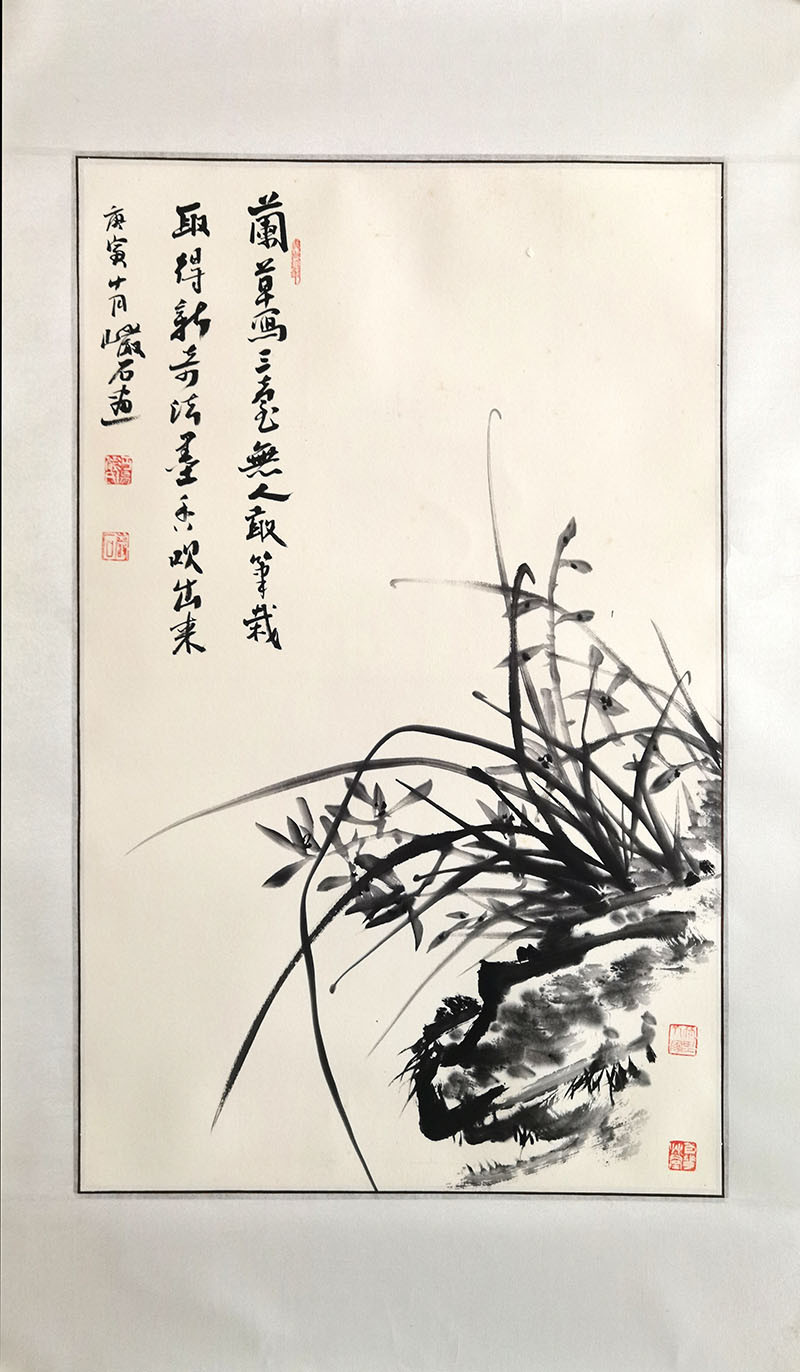 蘭草寫三臺無人敢筆栽
取得新奇法墨香吹出来
庚寅十月巖石畫